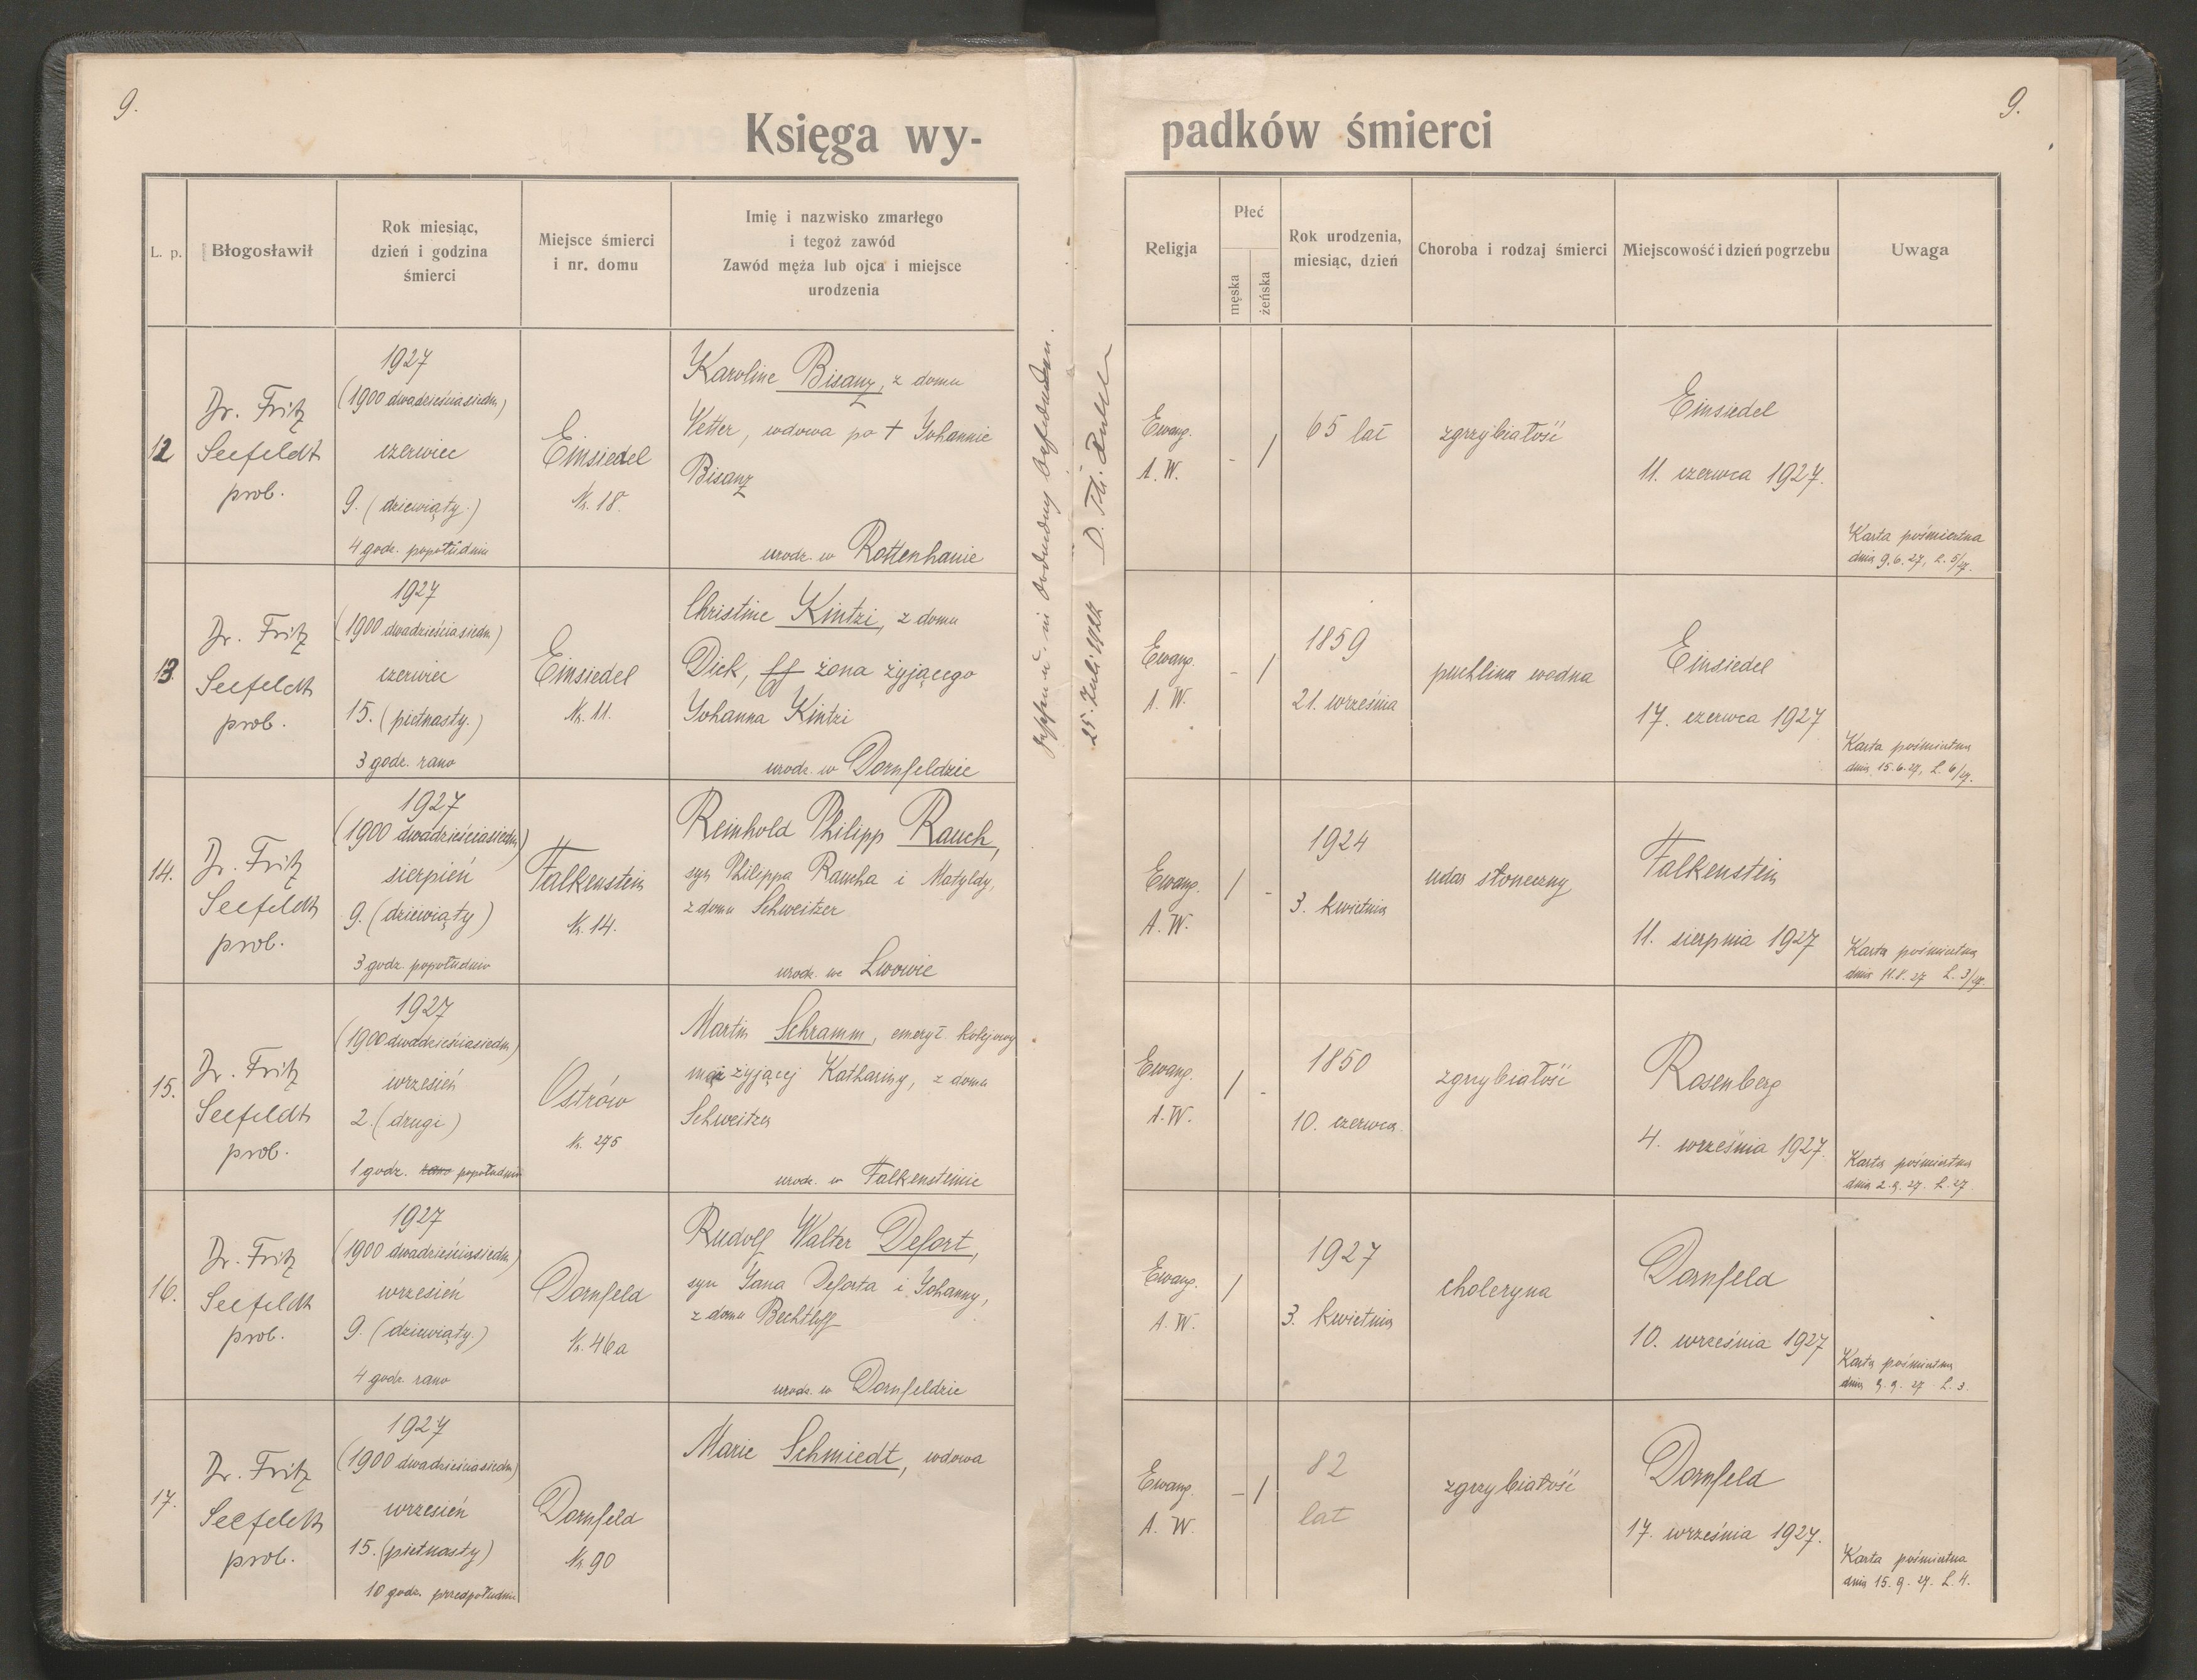 9.
9.
Księga wy-
padków śmierci
L. p.
Błogosławił
Rok miesiąc,
dzień i godzina
śmierci
Miejsce śmierci
i nr. domu
Imię i nazwisko zmarłego
i tegoż zawód
Zawód męża lub ojca i miejsce
urodzenia
Religja
Płeć
męska
żeńska
Rok urodzenia,
miesiąc, dzień
Choroba i rodzaj śmierci
Miejscowość i dzień pogrzebu
Uwaga
12
Dr. Fritz
Seefeldt
prob.
1927
(1900 dwadzieściasiedm)
czerwiec
9. (dziewiąty.)
4 godz. popołudniu
Einsiedel
Nr. 18.
Karoline Bisanz, z domu
Vetter, wdowa po † Johannie
Bisanz
urodz. w Rottenhanie
Ewang.
A. W.
- /
65 lat
zgrzybiałość
Einsiedel
11. czerwca 1927.
Karta pośmiertna
dnia 9.6.27, L. 5/27.
13.
Dr. Fritz
Seefeldt
prob.
1927
(1900 dwadzieściasiedm)
czerwiec
15. (pietnasty.)
3 godz. rano
Einsiedel
Nr. 11.
Christine Kintzi, z domu
Dick, żona żyjącego
Johanna Kintzi
urodz. w Dornfeldzie
Ewang.
A. W.
- /
1859
21. września
puchlina wodna
Einsiedel
17. czerwca 1927
Karta pośmiertna
dnia 15.6.27, L. 6/27.
14.
Dr. Fritz
Seefeldt
prob.
1927
(1900 dwadzieściasiedm)
sierpień
9. (dziewiąty)
3 godz. popołudniu
Falkenstein
Nr. 14.
Reinhold Philipp Rauch,
syn Philippa Raucha i Matyldy,
z domu Schweitzer
urodz. we Lwowie
Ewang.
A. W.
/ -
1924
3. kwietnia
udar słoneczny
Falkenstein
11. sierpnia 1927
Karta pośmiertna
dnia 11.8.27 L. 3/27.
15.
Dr. Fritz
Seefeldt
prob.
1927
(1900 dwadzieściasiedm)
wrzesień
2. (drugi)
1 godz. rano popołudniu
Ostrów
Nr. 275
Martin Schramm, emeryt kolejowy
mąż żyjącej Kathariny, z domu
Schweitzer
urodz. w Falkensteinie
Ewang.
A. W.
/ -
1850
10. czerwca.
zgrzybiałość
Rosenberg
4. września 1927.
Karta pośmiertna
dnia 2.9.27. L. 27
16.
Dr. Fritz
Seefeldt
prob.
1927
(1900 dwadzieściasiedm)
wrzesień
9. (dziewiąty.)
4 godz. rano
Dornfeld
Nr. 46a
Rudolf Walter Defort,
syn Jana Deforta i Johanny,
z domu Bechtloff
urodz. w Dornfeldzie
Ewang.
A. W.
/
1927
3. kwietnia
choleryna
Dornfeld
10. września 1927
Karta pośmiertna
dnia 9.9.27 L. 3.
17.
Dr. Fritz
Seefeldt
prob.
1927
(1900 dwadzieściasiedm)
wrzesień
15. (pietnasty)
10 godz. przedpołudniu
Dornfeld
Nr 90
Marie Schmiedt, wdowa
Ewang.
A. W.
- /
82
lat
zgrzybiałość
Dornfeld
17. września 1927.
Karta pośmiertna
dnia 15.9.27. L. 4.
25. Juli 1927 D. Th.